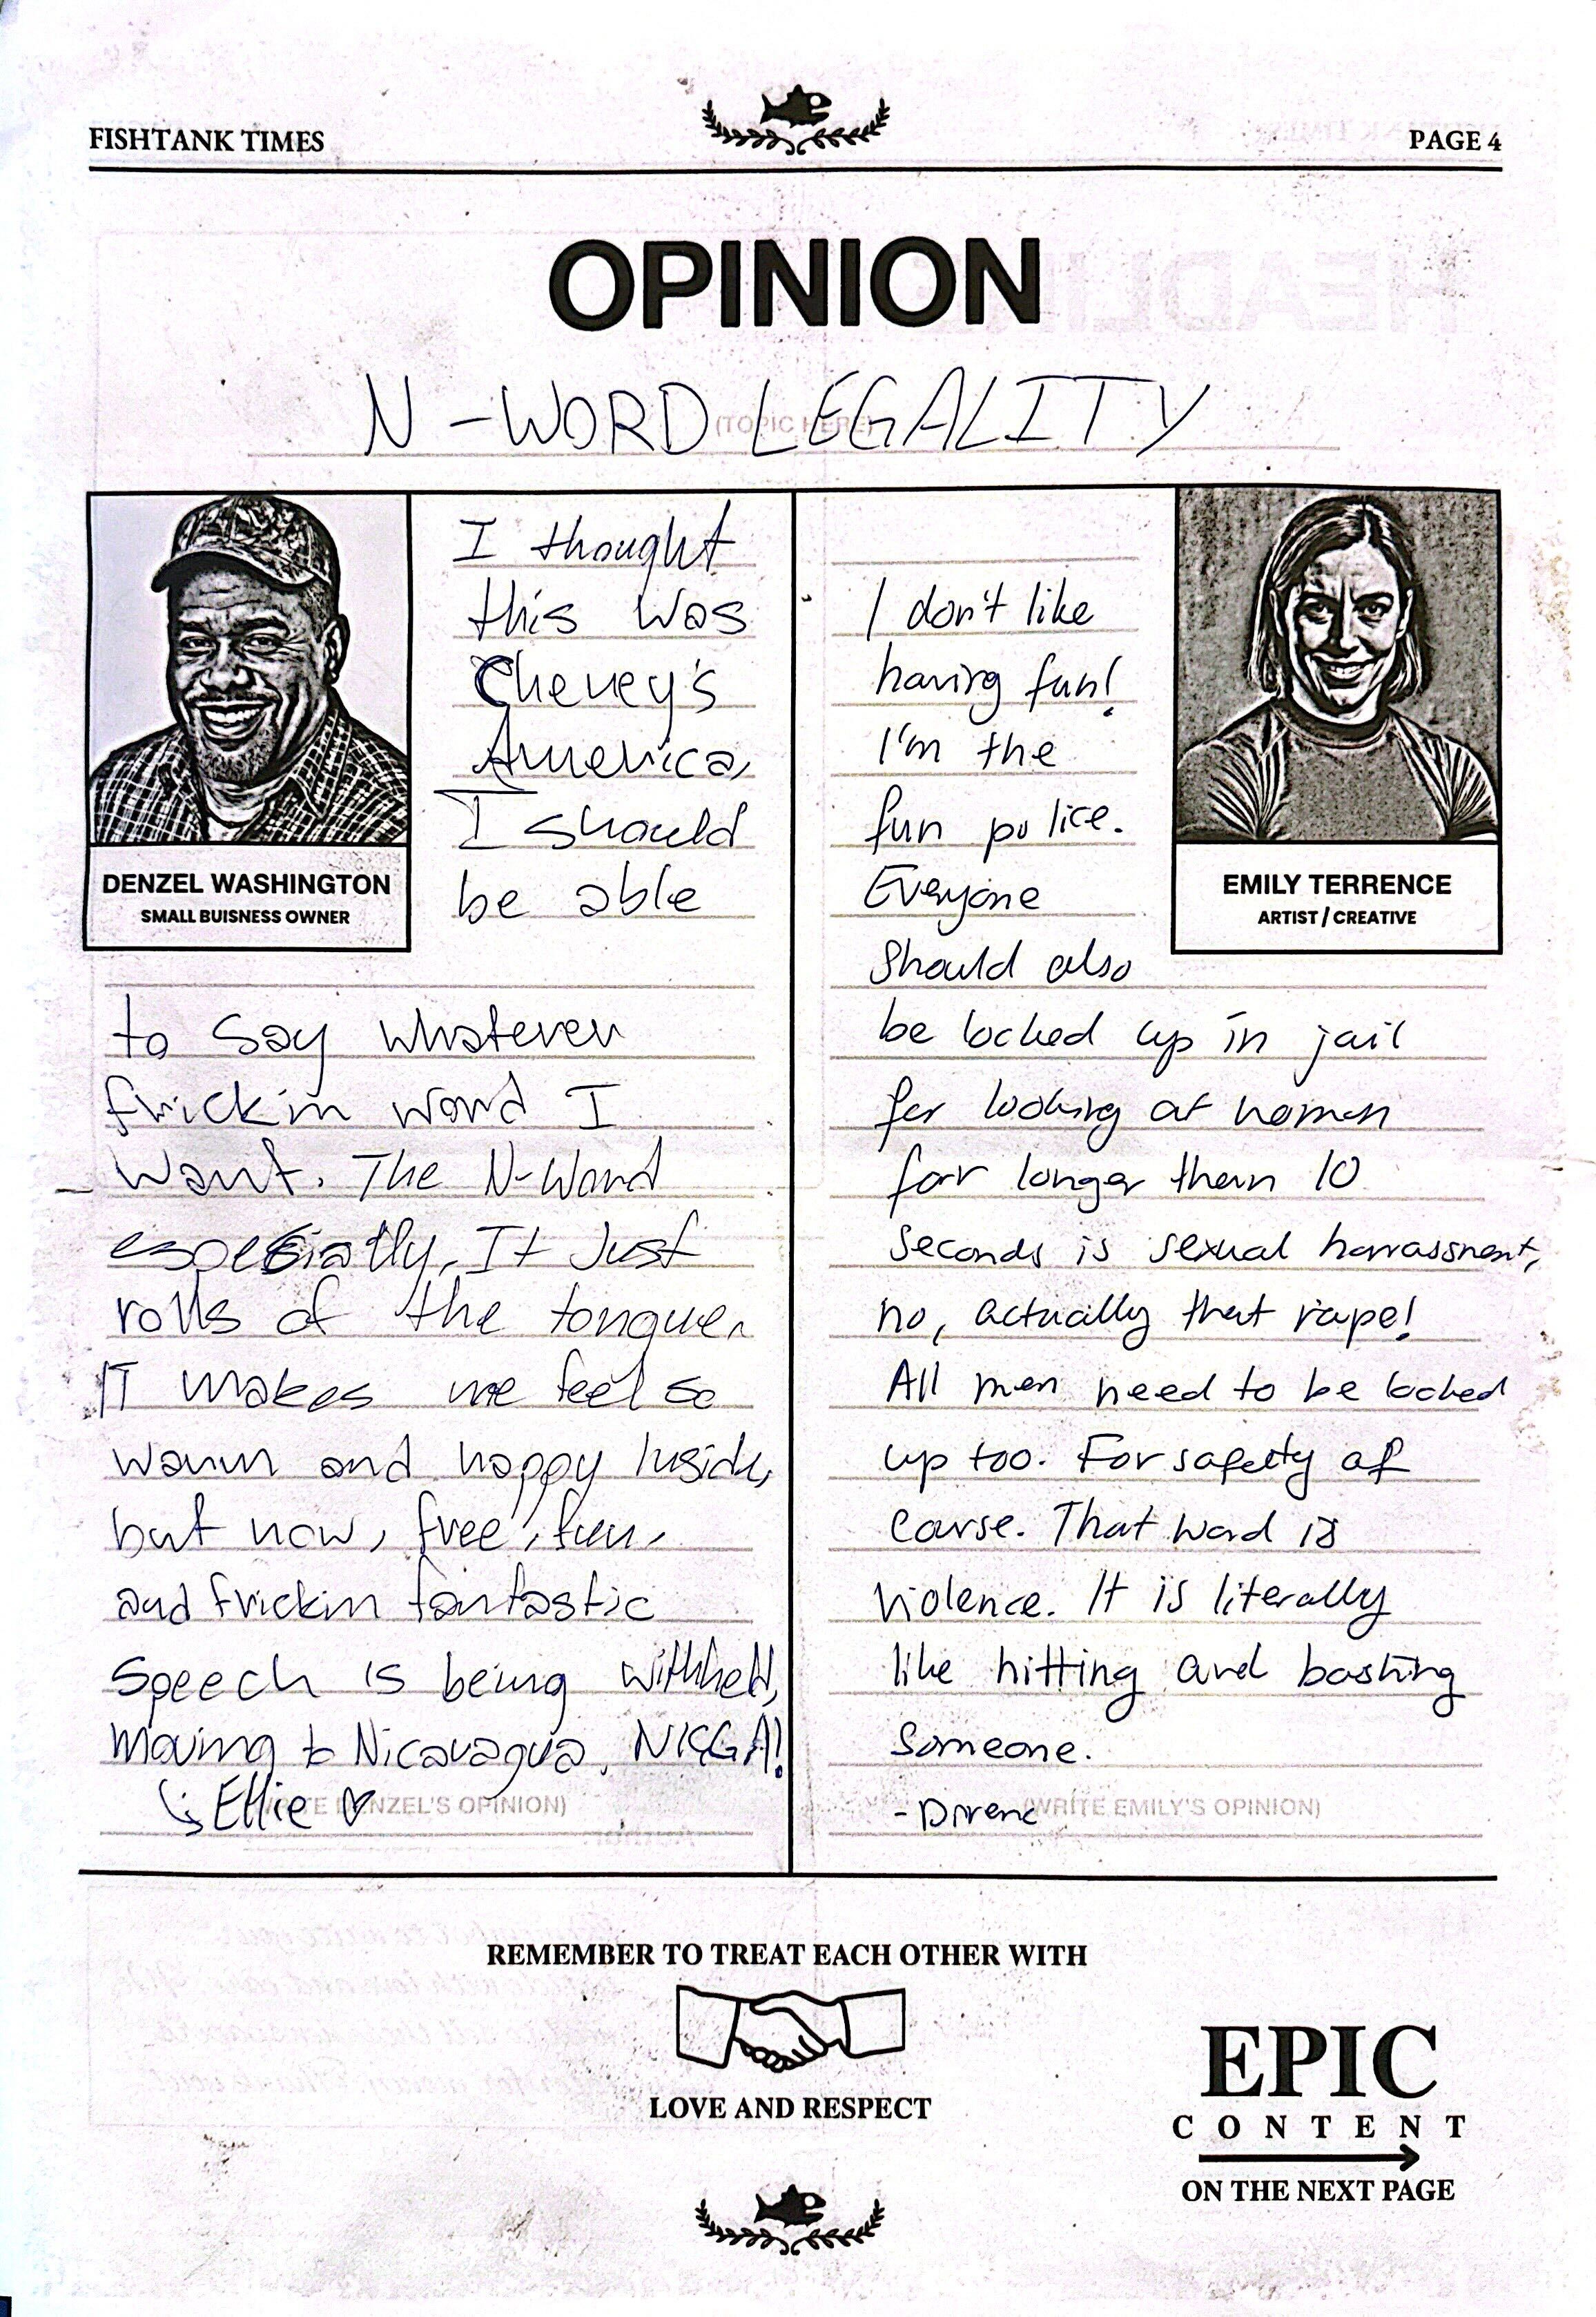 FISHTANK TIMES
PAGE 4
OPINION
N-WORD LEGALITY
(TOPIC HERE)
DENZEL WASHINGTON
SMALL BUISNESS OWNER
I thought
this was
Cheney's
America,
I should
be able
to say whatever
frickin word I
want. The N-Word
especially. It Just
rolls of the tongue.
IT makes me feel so
warm and happy inside,
but now, free, fun,
and frickin fantastic
speech is being withheld,
Moving to Nicaragua, NIGGA!
Ellie ♡
(WRITE DENZEL'S OPINION)
EMILY TERRENCE
ARTIST / CREATIVE
I don't like
having fun!
I'm the
fun police.
Everyone
Should also
be locked up in jail
for looking at women
for longer than 10
Seconds is sexual harrassment,
no, actually that rape!
All men need to be locked
up too. For safety of
course. That word is
violence. It is literally
like hitting and bashing
Someone.
(WRITE EMILY'S OPINION)
REMEMBER TO TREAT EACH OTHER WITH
LOVE AND RESPECT
EPIC
CONTENT
ON THE NEXT PAGE